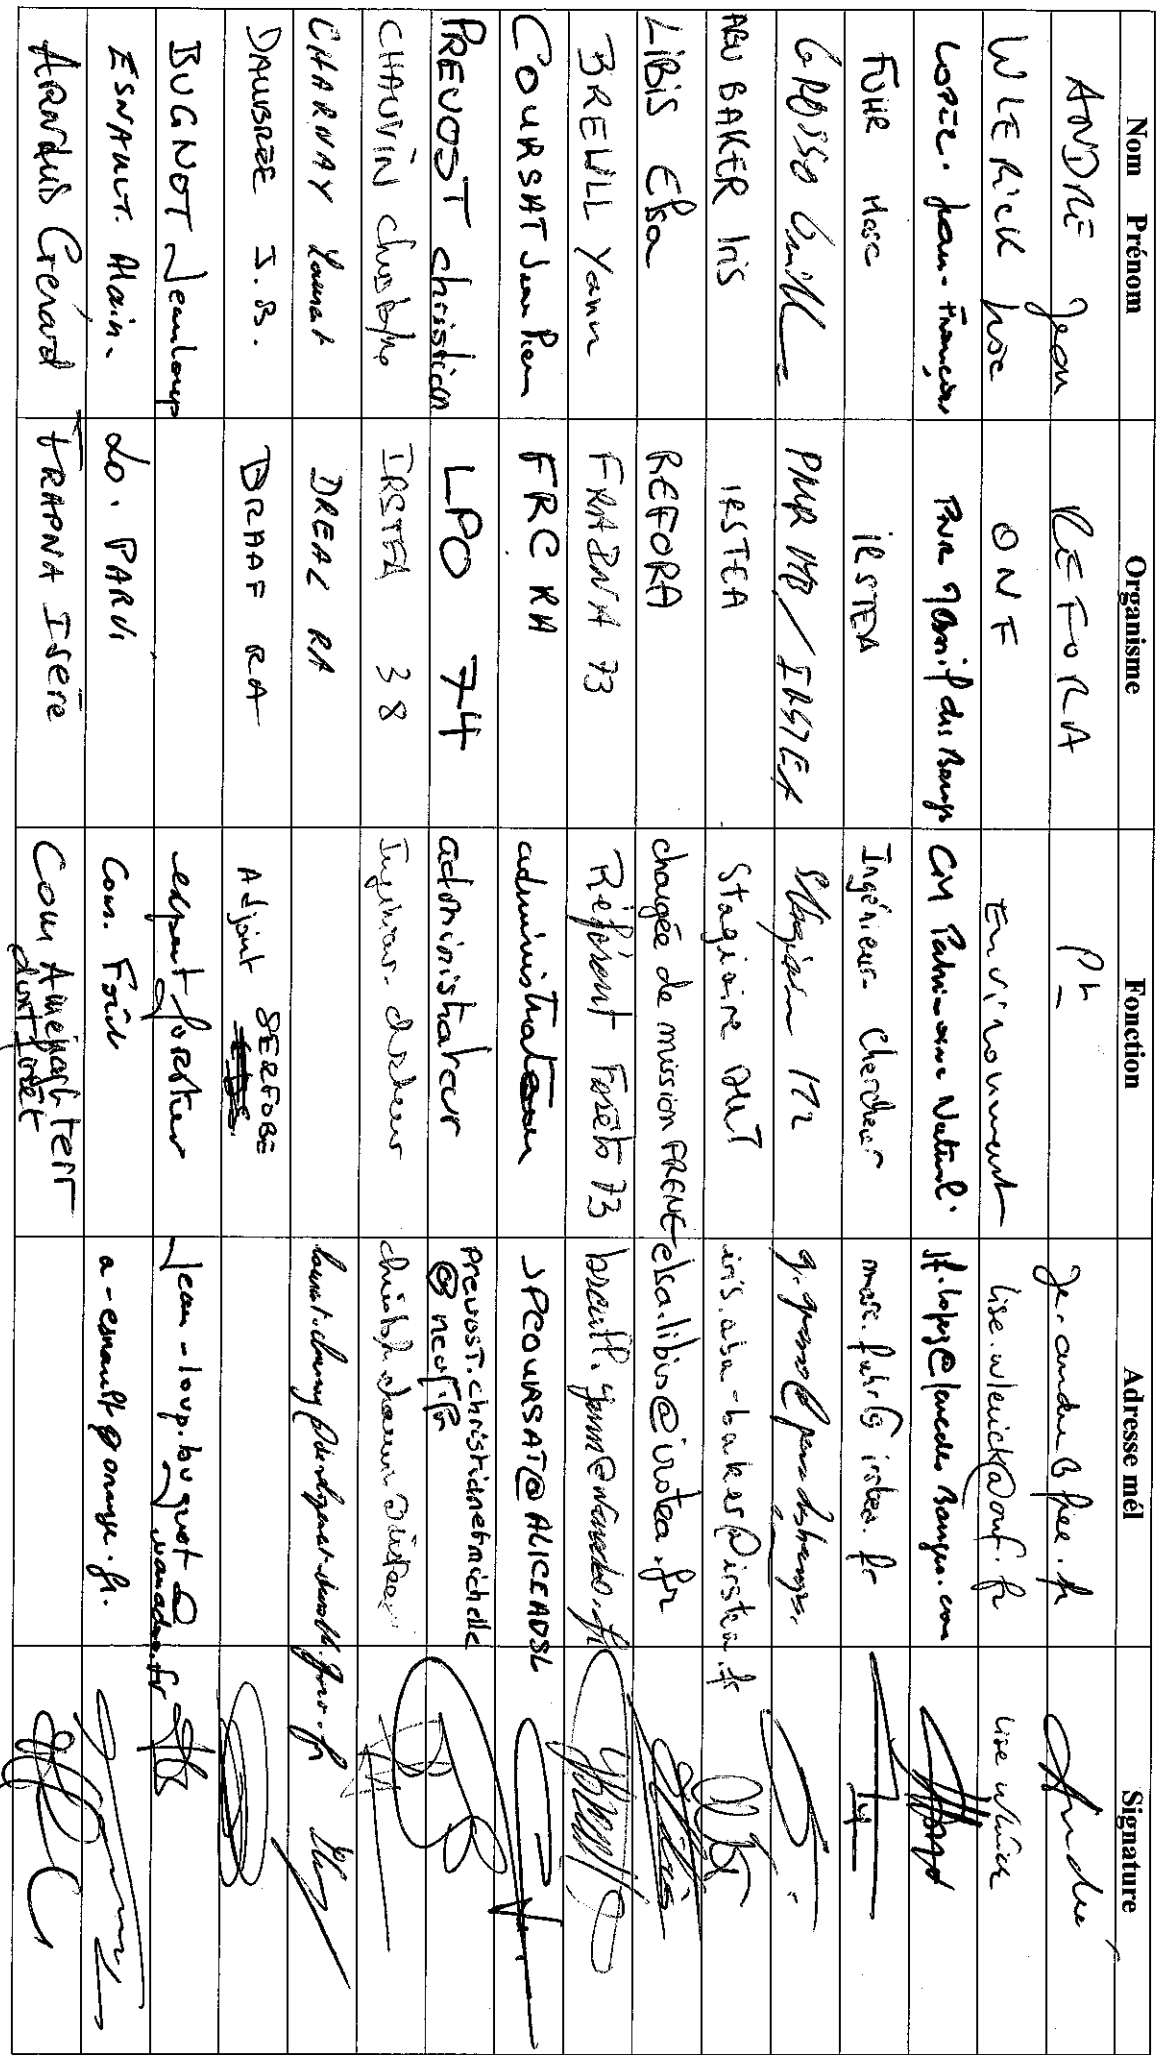 Nom Prénom Organisme Fonction Adresse mél Signature
ANDRE Jean REFORA Pt je.andre@free.fr André
WLERICK Lise ONF Environnement lise.wlerick@onf.fr lise wlerick
LOPEZ. Jean-François PNR Massif des Bauges CM Patrimoine Naturel. jf.lopez@parcdesbauges.com
FUHR Marc IRSTEA Ingénieur-Chercheur marc.fuhr@irstea.fr
GROSSO PNR MB/IRSTEA Stagiaire M2
ABU BAKER Iris IRSTEA Stagiaire DUT iris.abu-baker@irstea.fr
LIBIS Elsa REFORA chargée de mission FRENE elsa.libis@irstea.fr
BREULL Yann FRAPNA 73 Référent Forêts 73 breull.yann@wanadoo.fr
COURSAT Jean Pierre FRC RA administrateur JPCOURSAT@ALICEADSL
PREVOST christian LPO 74 administrateur prevost.christianetmichelle
@neuf.fr
CHAUVIN christophe IRSTEA 38 Ingénieur-chercheur christophe.chauvin@irstea
CHARNAY Laurent DREAL RA laurent.charnay@developpement-durable.gouv.fr
DAUBREE J.B. DRAAF RA Adjoint SERFOBE
BUGNOT Jeanloup expert forestier Jean-loup.bugnot@
wanadoo.fr
ESNAULT. Alain. LO. PARVI Com. Forêt a-esnault@orange.fr.
ARNAUD Gérard FRAPNA Isère Com Aménagt terr
dont forêt